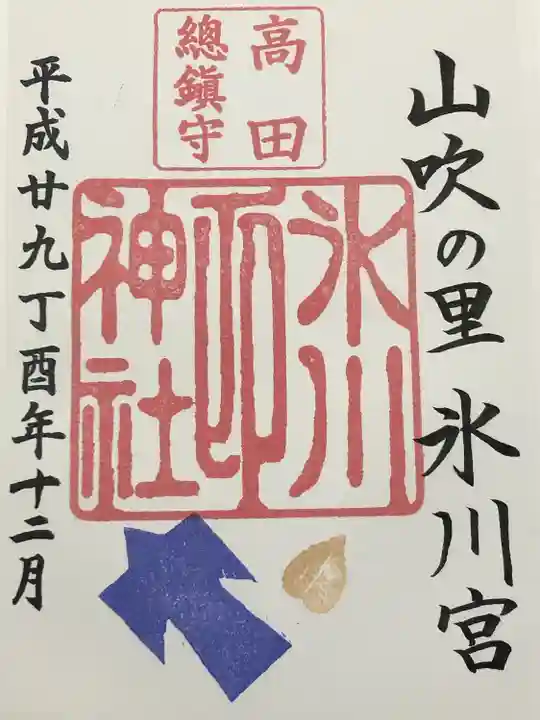 山吹の里 氷川宮
高田
總鎮守
氷川
神社
平成廿九丁酉年十二月